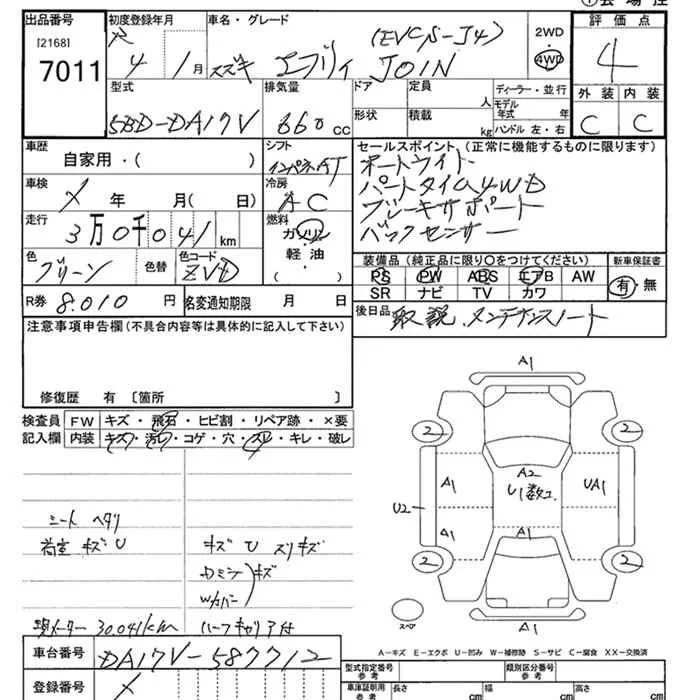 ①会場控
出品番号
[2168]
7011
初度登録年月
R 4/1月
車名・グレード
スズキ エブリィ JOIN (EVCハ-J4)
2WD
4WD
評価点
4
外装 内装
C C
型式
5BD-DA17V
排気量
660 cc
ドア
形状
定員 人
積載 kg
ディーラー・並行
モデル年式 年
ハンドル 左・右
車歴
自家用・( )
シフト
インパネAT
車検
X 年 月( 日)
冷房
AC
走行
3万0千041km
燃料
ガソリン
軽・油
( )
色
グリーン
色替
色コード
ZVD
R券 8.010 円
名変通知期限 月 日
セールスポイント(正常に機能するものに限ります)
オートライト
パートタイム4WD
ブレーキサポート
バックセンサー
装備品(純正品に限り○をつけてください)
新車保証書
PS PW ABS エアB AW
SR ナビ TV カワ
有・無
後日品
取説、メンテナンスノート
注意事項申告欄(不具合内容等は具体的に記入して下さい)
修復歴 有 〔箇所 〕
検査員記入欄
FW キズ・飛石・ヒビ割・リペア跡・×要
内装 キズ・汚レ・コゲ・穴・スレ・キレ・破レ
シート ヘタリ
荷室 キズ U
キズ U スリキズ
Dミラー キズ
W/カバー
現メーター 30.041km
ハーフキャリア付
A1
2 2
A2
U1数コ
A1
UA1
U2
A1
A1
2 2
スペア
A1
A-キズ E-エクボ U-凹み W-補修跡 S-サビ C-腐食 XX-交換済
車台番号
DA17V-587712
登録番号
X
型式指定番号 参考
類別区分番号 参考
車庫証明用 参考
長さ cm
幅 cm
高さ cm